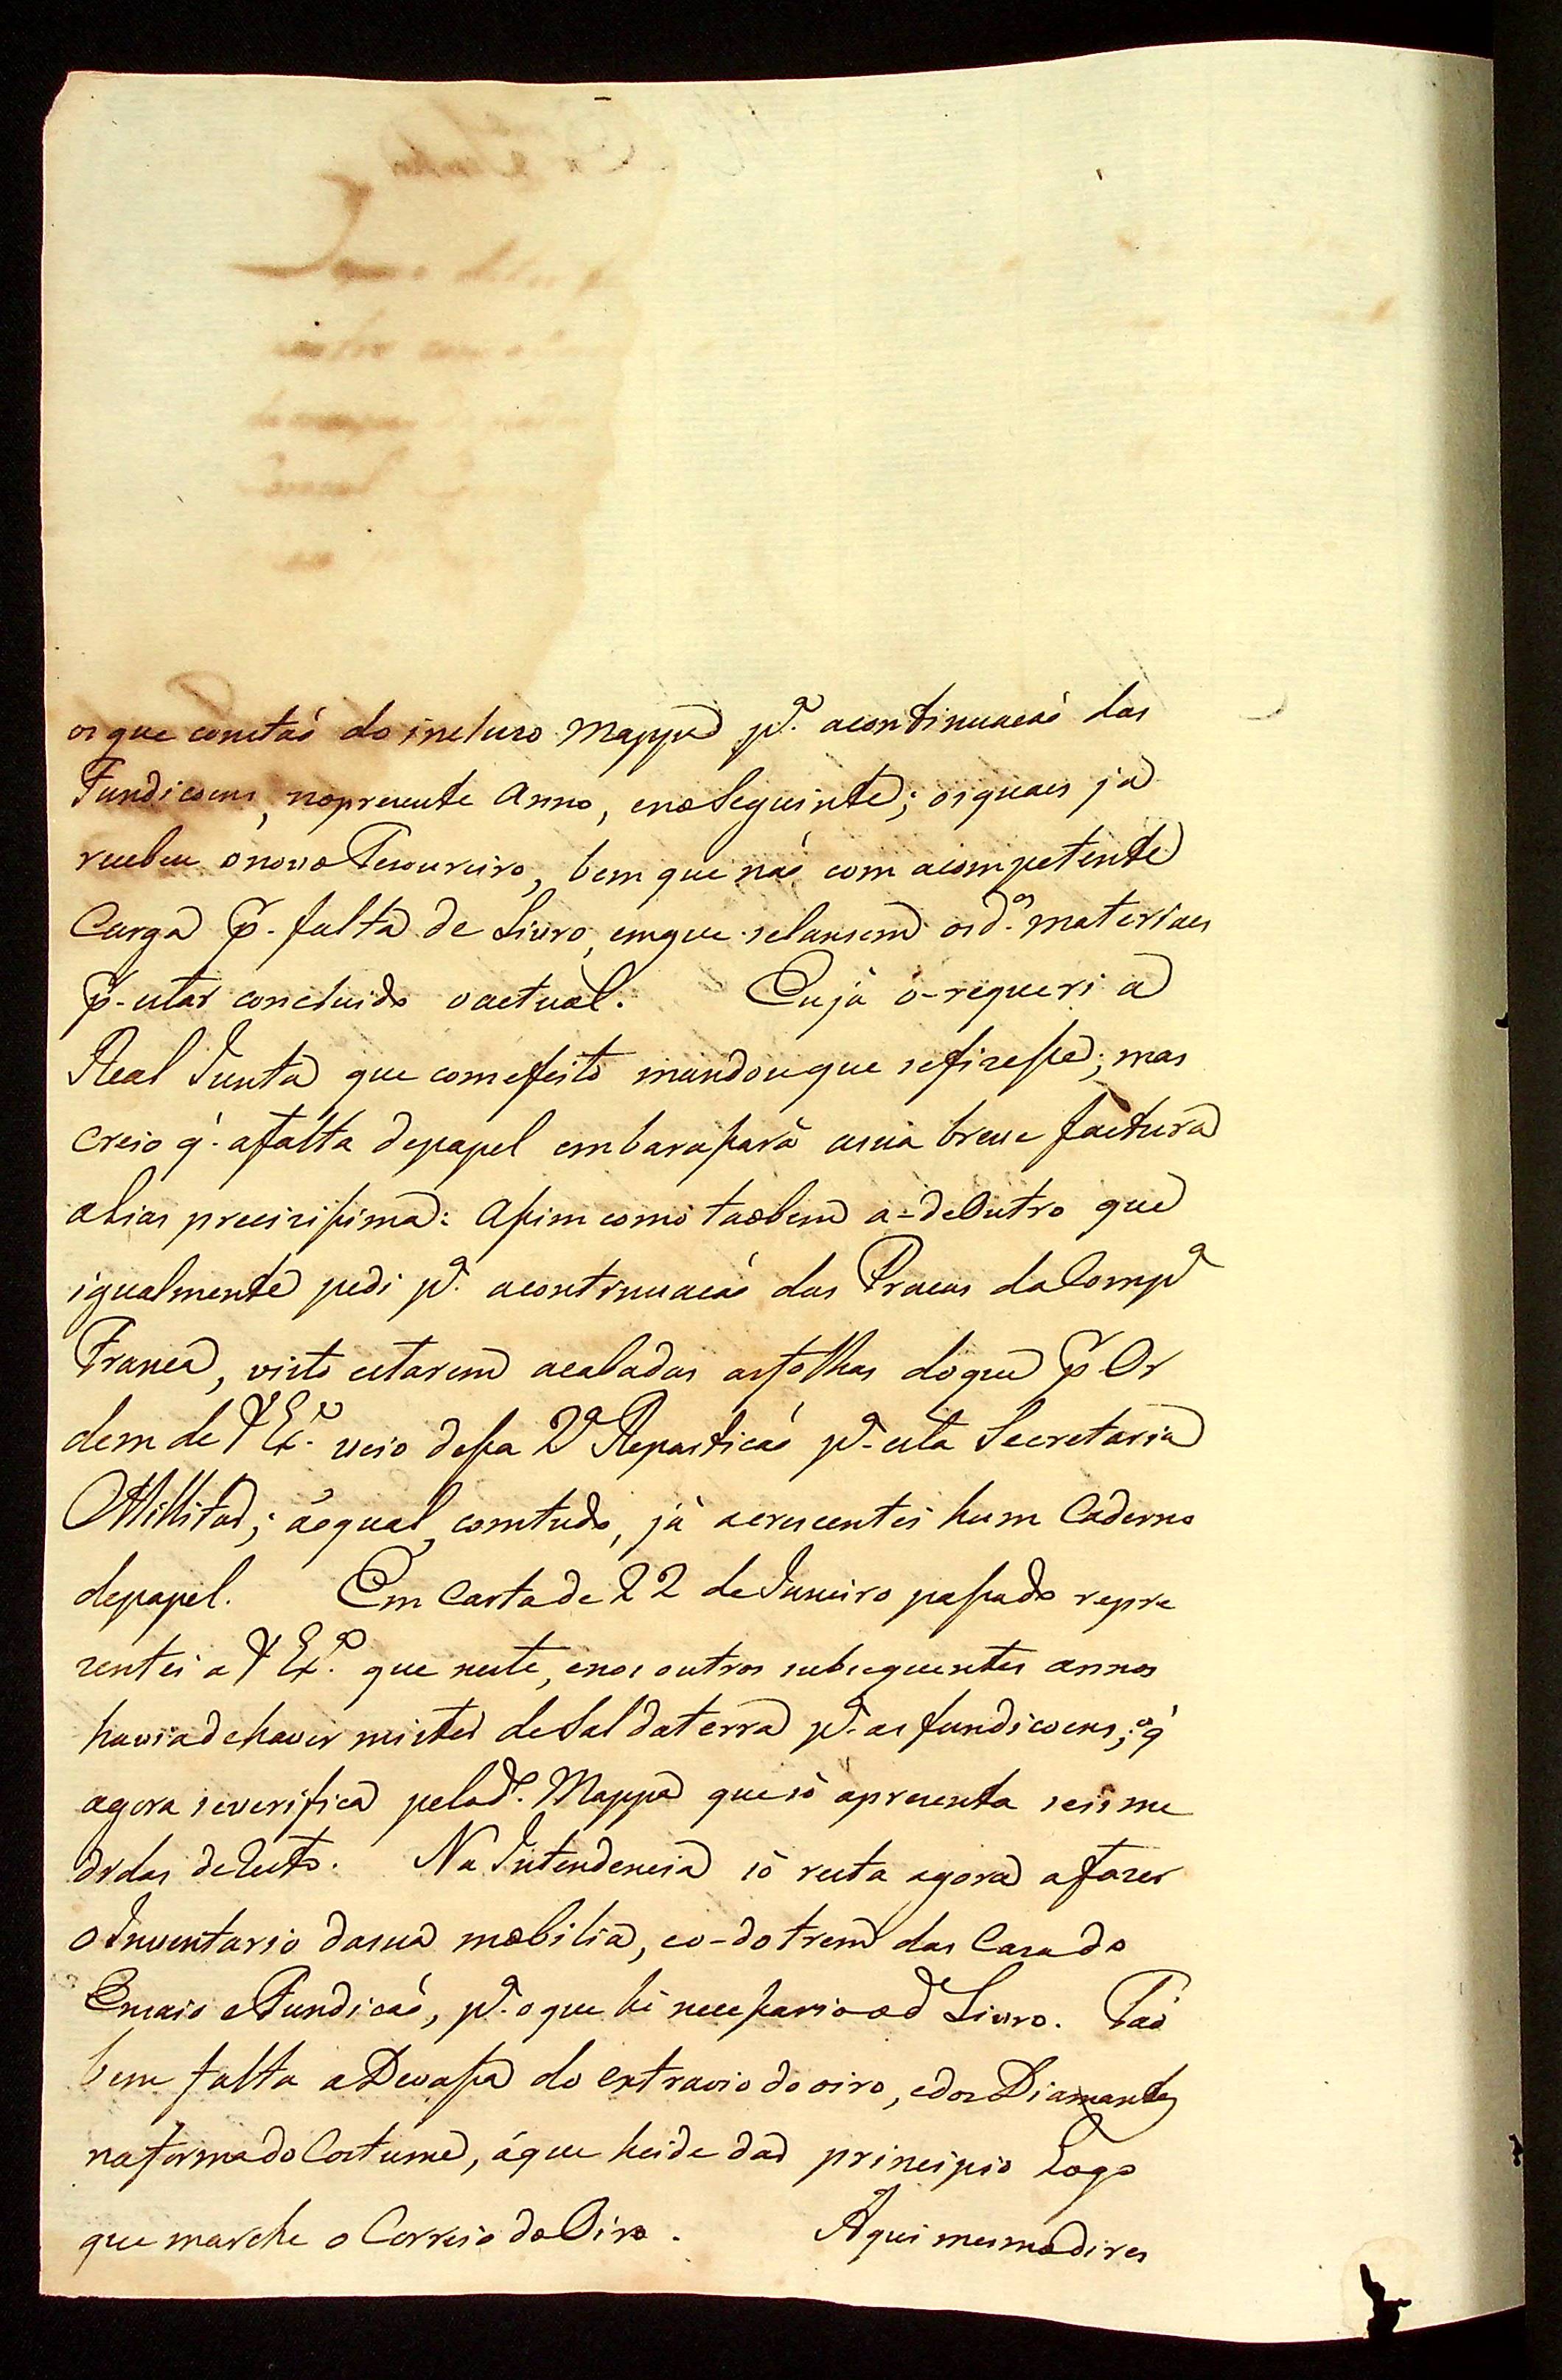 os que constaõ do incluso Mappa pª. acontinuacaõ das
Fundicoens, nopresente Anno, enoSeguinte; osquaes já
recebeu onovoTesoureiro, bem que naõ com acompetente
Carga p. falta de Livro, emque selansem osdos. materiaes
p-estar concluido oactual. Eu já o-requeri a
Real Junta que comefeito mandouque sefizesse; mas
creio q'. afalta depapel embarassará asua breve factura
alias precisissima: Assim como taobem a=deOutro que
igualmente pedi pª. acontinuacaõ das Pracas daCompª
Franca, visto estarem acabadas asfolhas doque p Or
dem de V Exª. veio dessa 2ª Reparticaõ pª-esta Secretaria
Millitar; áoqual, comtudo, já acrescentei hum Caderno
depapel. Em Carta de 22 deJaneiro passado repre
zentei a V Exª. que neste, enos outros subsequentes annos
haviadehaver mister deSal daterra pª. as fundicoens; oq'
agora severifica pelodº. Mappa que só apresenta seis me
didas deResto. Na Intendencia só resta agora afazer
oInventario dasua mobilia, eo-dotrem das Casas do
Ensaio eFundicaõ, pª. oque hé necessario odº Livro. Taõ
bem falta aDevassa do extravio do oiro, edos Diamantes
naformadoCostume, áque heide dar principio Logo
que marche o Correio doOiro. Aqui mesmodirei